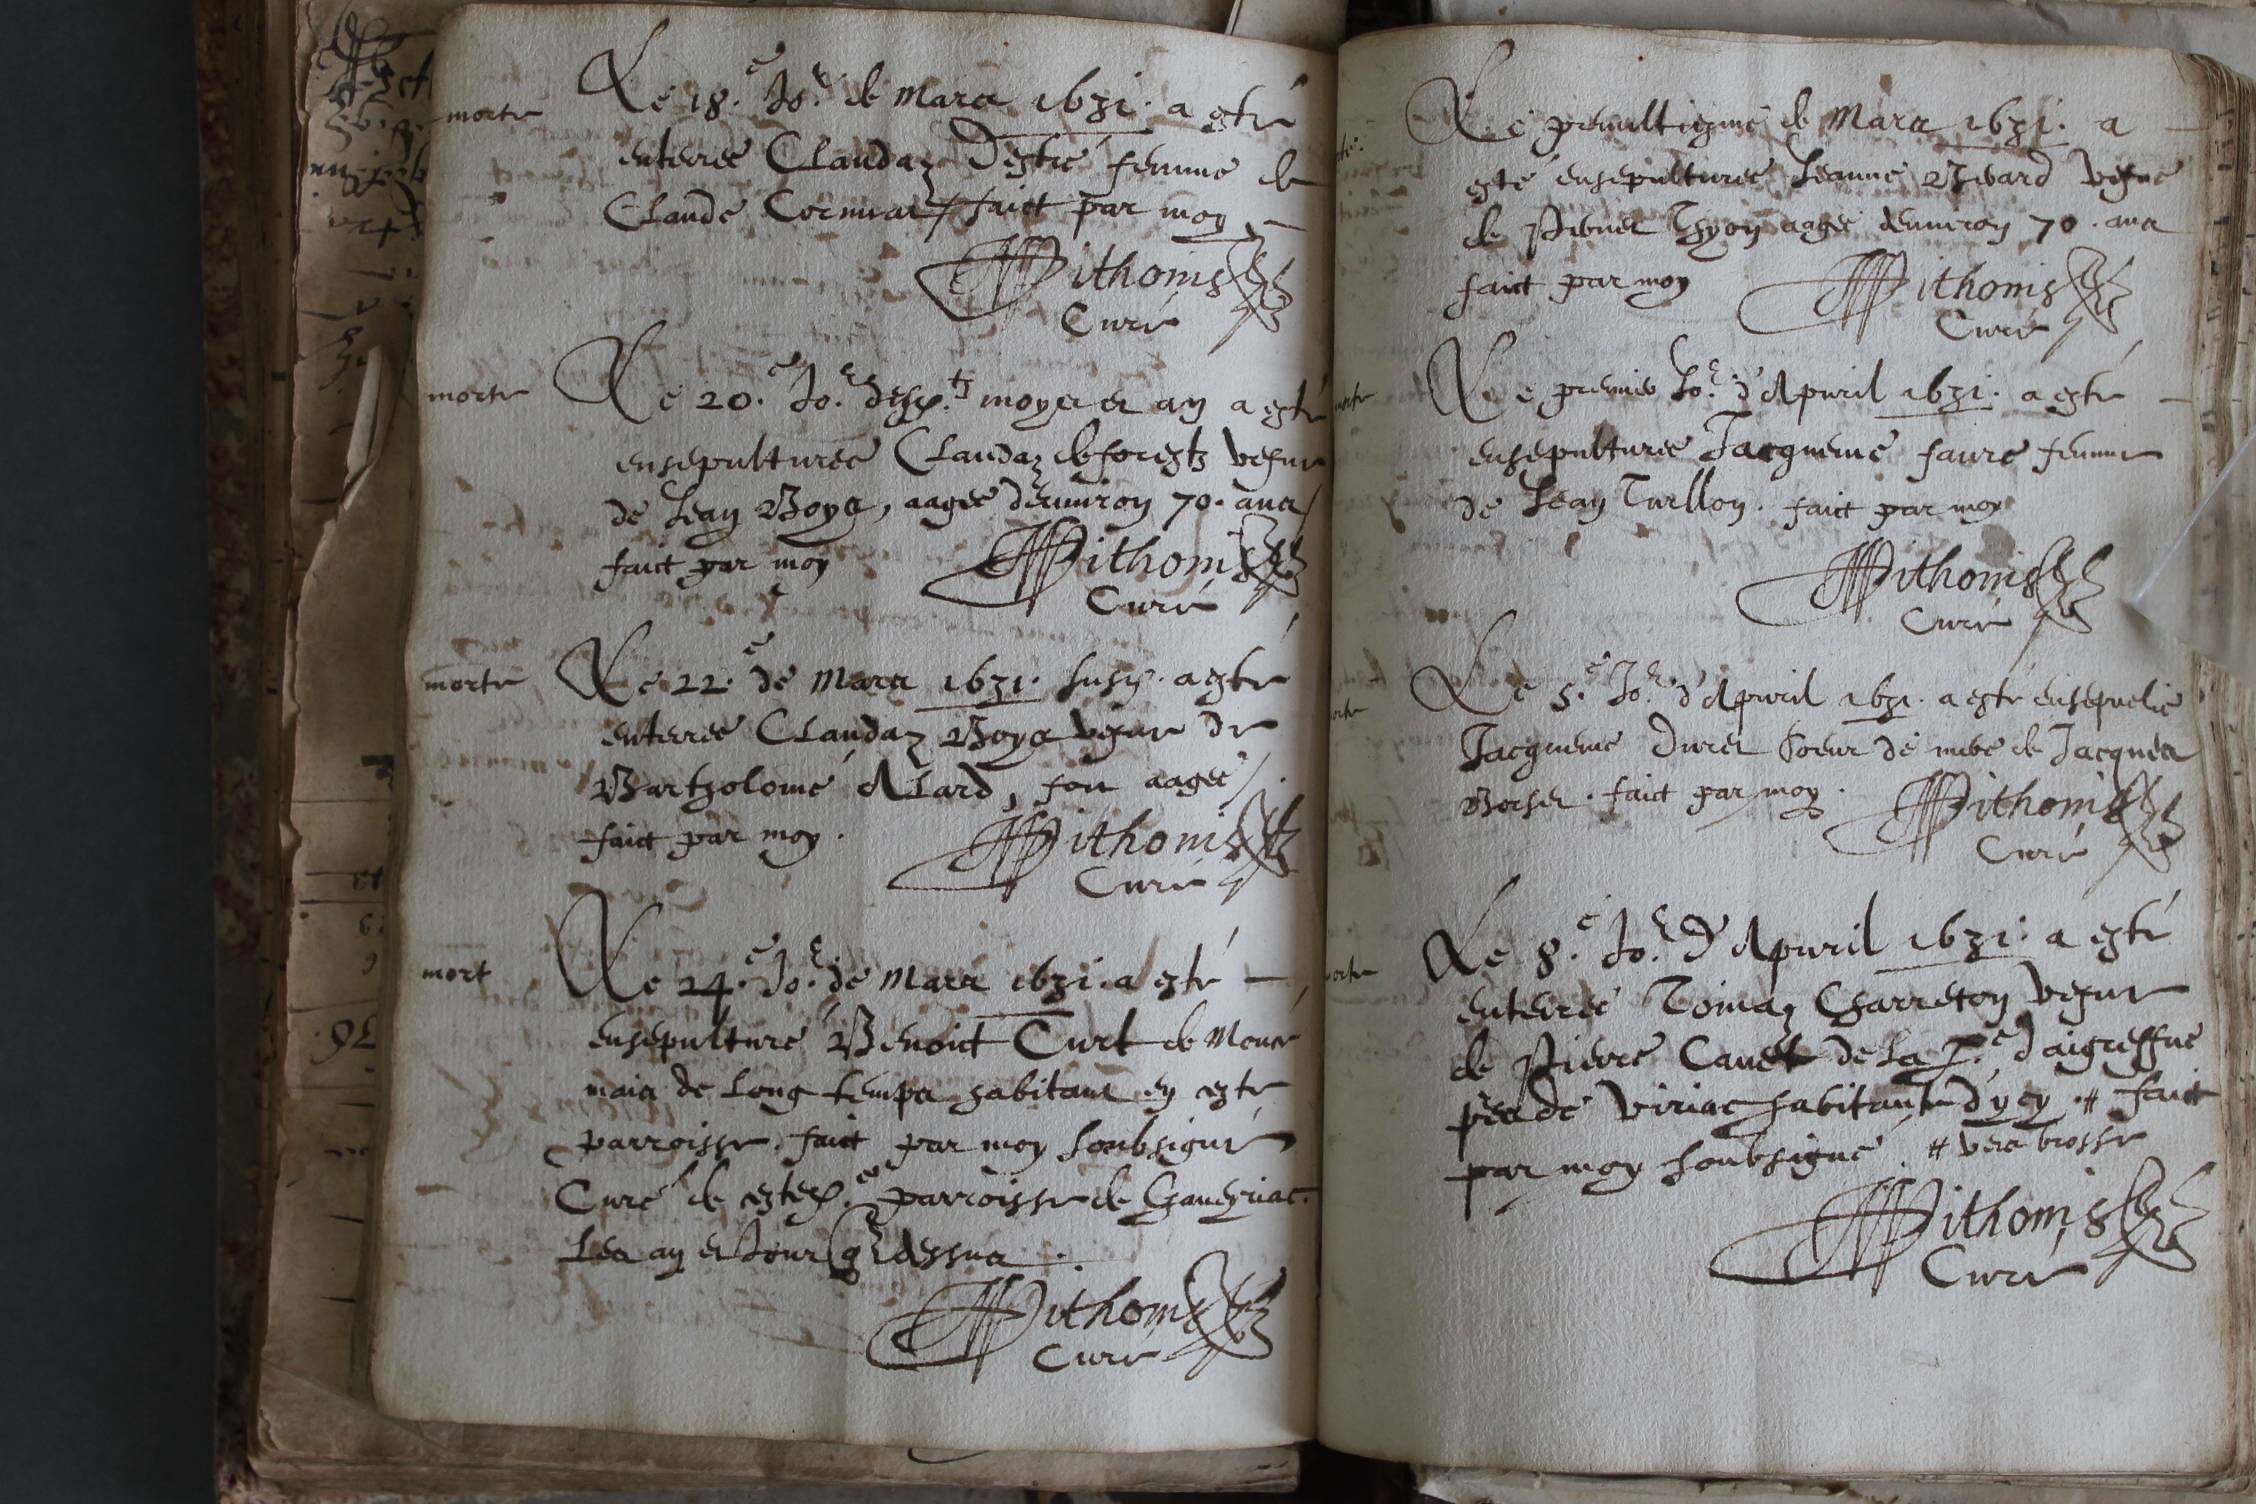 morte
Le 18.e Jo.r de Mars 1631. a esté
enterree Claudaz Destre femme de
Claude Cormiat / faict par moy
Pithonis
Curé
morte
Le 20.e Jo.r desd.ts moys et an a esté
ensepulturee Claudaz deforestz vefve
de Jean Boys, aagee d'environ 70. ans /
faict par moy
Pithonis
Curé
morte
Le 22.e de Mars 1631. susd. a esté
enterree Claudaz Boys vefve de
Bartholomé Allard, fort aagee /.
faict par moy.
Pithonis
Curé
mort
Le 24.e Jo.r de Mars 1631. a esté
ensepulturé Benoict Curt de
mais de long temps habitant en este
parroisse. faict par moy soubsigné
Curé de parroisse de
Les an et Jour q dessus.
Pithonis
Curé
Le penultiesme de Mars 1631. a
esté ensepulturee Jeanne vefve
de aagee d'environ 70. ans
faict par moy
Pithonis
Curé
morte
Le premier Jo.r d'Apvril 1631. a esté
ensepulturee Jacqueme faure femme
de Jean Turllon. faict par moy
Pithonis
Curé
morte
Le 5.e Jo.r d'Apvril 1631. a esté ensepvelie
Jacqueme Duret soeur de mere de Jacques
faict par moy.
Pithonis
Curé
morte
Le 8.e Jo.r d'Apvril 1631. a esté
enterree Toinaz Charreton vefve
de Pierre Canet de la P.e d'aigreffue
pres de Viriac habitante d'ycy # faict
par moy soubsigné # vers brosse
Pithonis
Curé